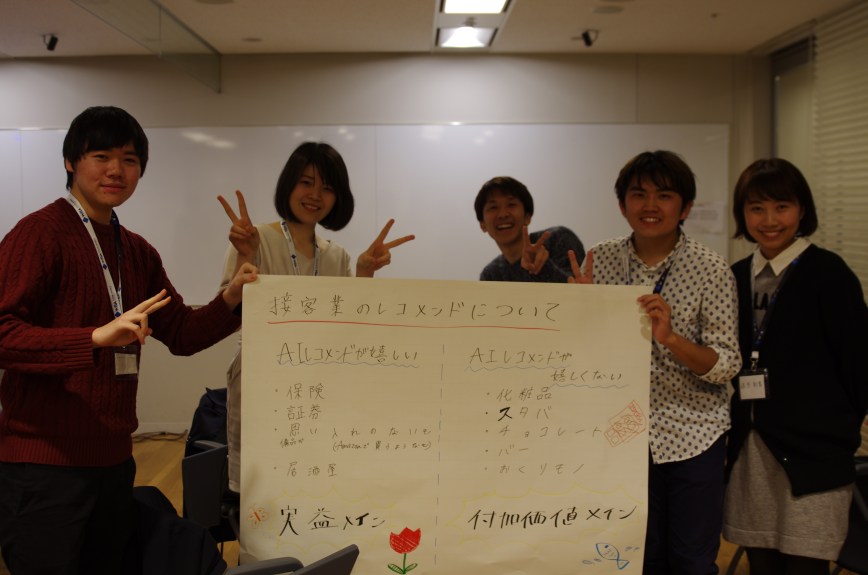 接客業のレコメンドについて
AIレコメンドが嬉しい
・保険
・証券
・思い入れのないもの
(Amazonで買うようなもの)
・居酒屋
実益メイン
AIレコメンドが
嬉しくない
・化粧品
・スタバ
・チョコレート
・バー
・おくりモノ
付加価値メイン